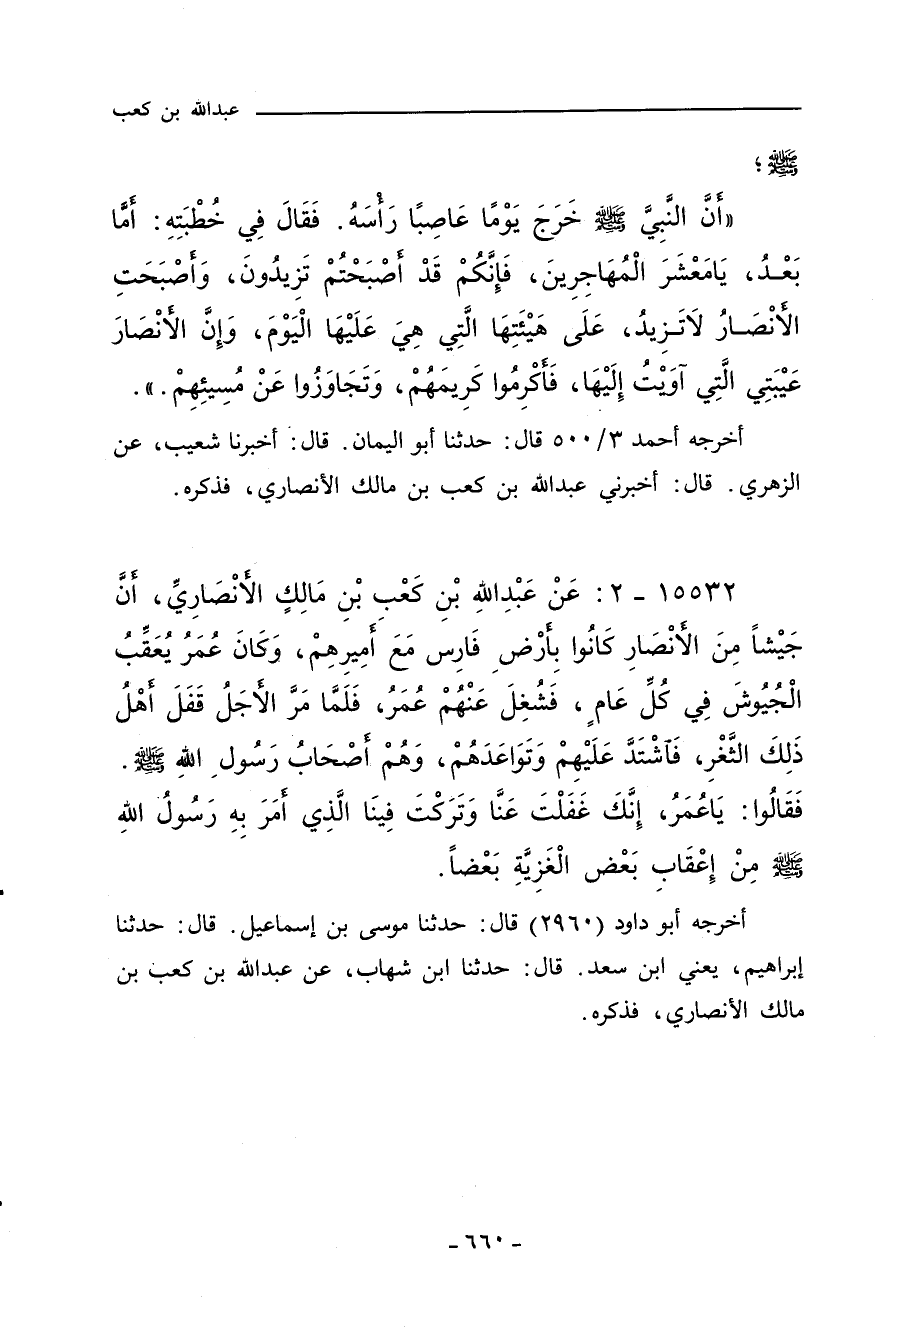 عبدالله بن كعب
ﷺ ؛
«أَنَّ النَّبِيَّ ﷺ خَرَجَ يَوْمًا عَاصِبًا رَأْسَهُ. فَقَالَ فِي خُطْبَتِهِ: أَمَّا
بَعْـدُ، يَامَعْشَرَ الْمُهَاجِرِينَ، فَإِنَّكُمْ قَدْ أَصْبَحْتُمْ تَزِيدُونَ، وَأَصْبَحَتِ
الأَنْصَـارُ لاَتَـزِيدُ، عَلَى هَيْئَتِهَا الَّتِي هِيَ عَلَيْهَا الْيَوْمَ، وَإِنَّ الأَنْصَارَ
عَيْبَتِي الَّتِي آوَيْتُ إِلَيْهَا، فَأَكْرِمُوا كَرِيمَهُمْ، وَتَجَاوَزُوا عَنْ مُسِيئِهِمْ.».
أخرجه أحمد ٣/ ٥٠٠ قال: حدثنا أبو اليمان. قال: أخبرنا شعيب، عن
الزهري. قال: أخبرني عبدالله بن كعب بن مالك الأنصاري، فذكره.
١٥٥٣٢ ـ ٢: عَنْ عَبْدِاللهِ بْنِ كَعْبِ بْنِ مَالِكٍ الأَنْصَارِيِّ، أَنَّ
جَيْشاً مِنَ الأَنْصَارِ كَانُوا بِأَرْضِ فَارِس مَعَ أَمِيرِهِمْ، وَكَانَ عُمَرُ يُعَقِّبُ
الْجُيُوشَ فِي كُلِّ عَامٍ، فَشُغِلَ عَنْهُمْ عُمَرُ، فَلَمَّا مَرَّ الأَجَلُ قَفَلَ أَهْلُ
ذَلِكَ الثَّغْرِ، فَاشْتَدَّ عَلَيْهِمْ وَتَوَاعَدَهُمْ، وَهُمْ أَصْحَابُ رَسُولِ اللهِ ﷺ.
فَقَالُوا: يَاعُمَرُ، إِنَّكَ غَفَلْتَ عَنَّا وَتَرَكْتَ فِينَا الَّذِي أَمَرَ بِهِ رَسُولُ اللهِ
ﷺ مِنْ إِعْقَابِ بَعْضِ الْغَزِيَّةِ بَعْضاً.
أخرجه أبو داود (٢٩٦٠) قال: حدثنا موسى بن إسماعيل. قال: حدثنا
إبراهيم، يعني ابن سعد. قال: حدثنا ابن شهاب، عن عبدالله بن كعب بن
مالك الأنصاري، فذكره.
ـ ٦٦٠ ـ